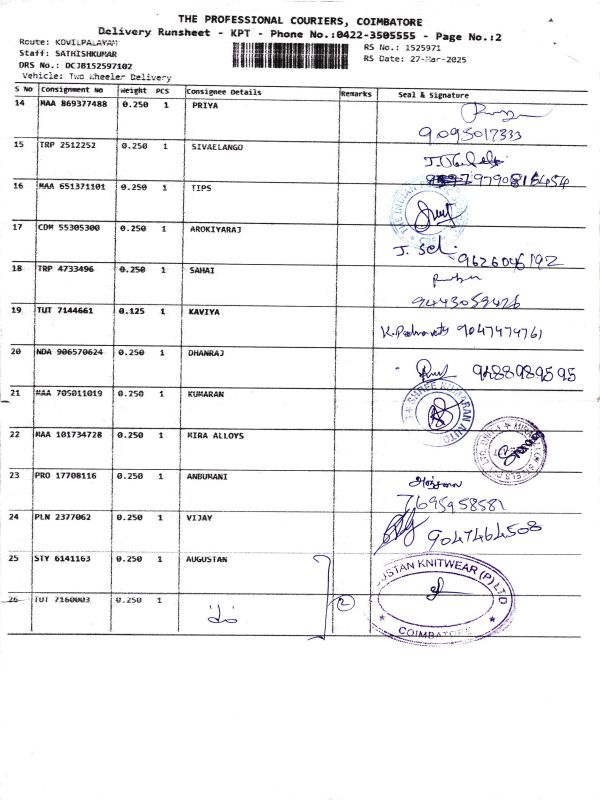 THE PROFESSIONAL COURIERS, COIMBATORE
Delivery Runsheet - KPT - Phone No.:0422-3505555 - Page No.:2
Route: KOVILPALAYAM
Staff: SATHISHKUMAR
DRS No.: DCJB152597102
Vehicle: Two Wheeler Delivery
RS No.: 1525971
RS Date: 27-Mar-2025
S No Consignment No Weight PCS Consignee Details Remarks Seal & Signature
14 MAA 869377488 0.250 1 PRIYA
9095017333
15 TRP 2512252 0.250 1 SIVAELANGO
9790815454
16 MAA 651371101 0.250 1 TIPS
17 CDM 55305300 0.250 1 AROKIYARAJ
9626046192
18 TRP 4733496 0.250 1 SAHAI
9443059426
19 TUT 7144661 0.125 1 KAVIYA
9047474761
20 NDA 906570624 0.250 1 DHANRAJ
9488989595
21 MAA 705011019 0.250 1 KUMARAN
SHREE KUMARAN AUTO
22 MAA 101734728 0.250 1 MIRA ALLOYS
23 PRO 17708116 0.250 1 ANBUMANI
7695958581
24 PLN 2377062 0.250 1 VIJAY
9047464508
25 STY 6141163 0.250 1 AUGUSTAN
GUSTAN KNITWEAR (P) LTD
COIMBATORE
26 TUT 7160003 0.250 1
2